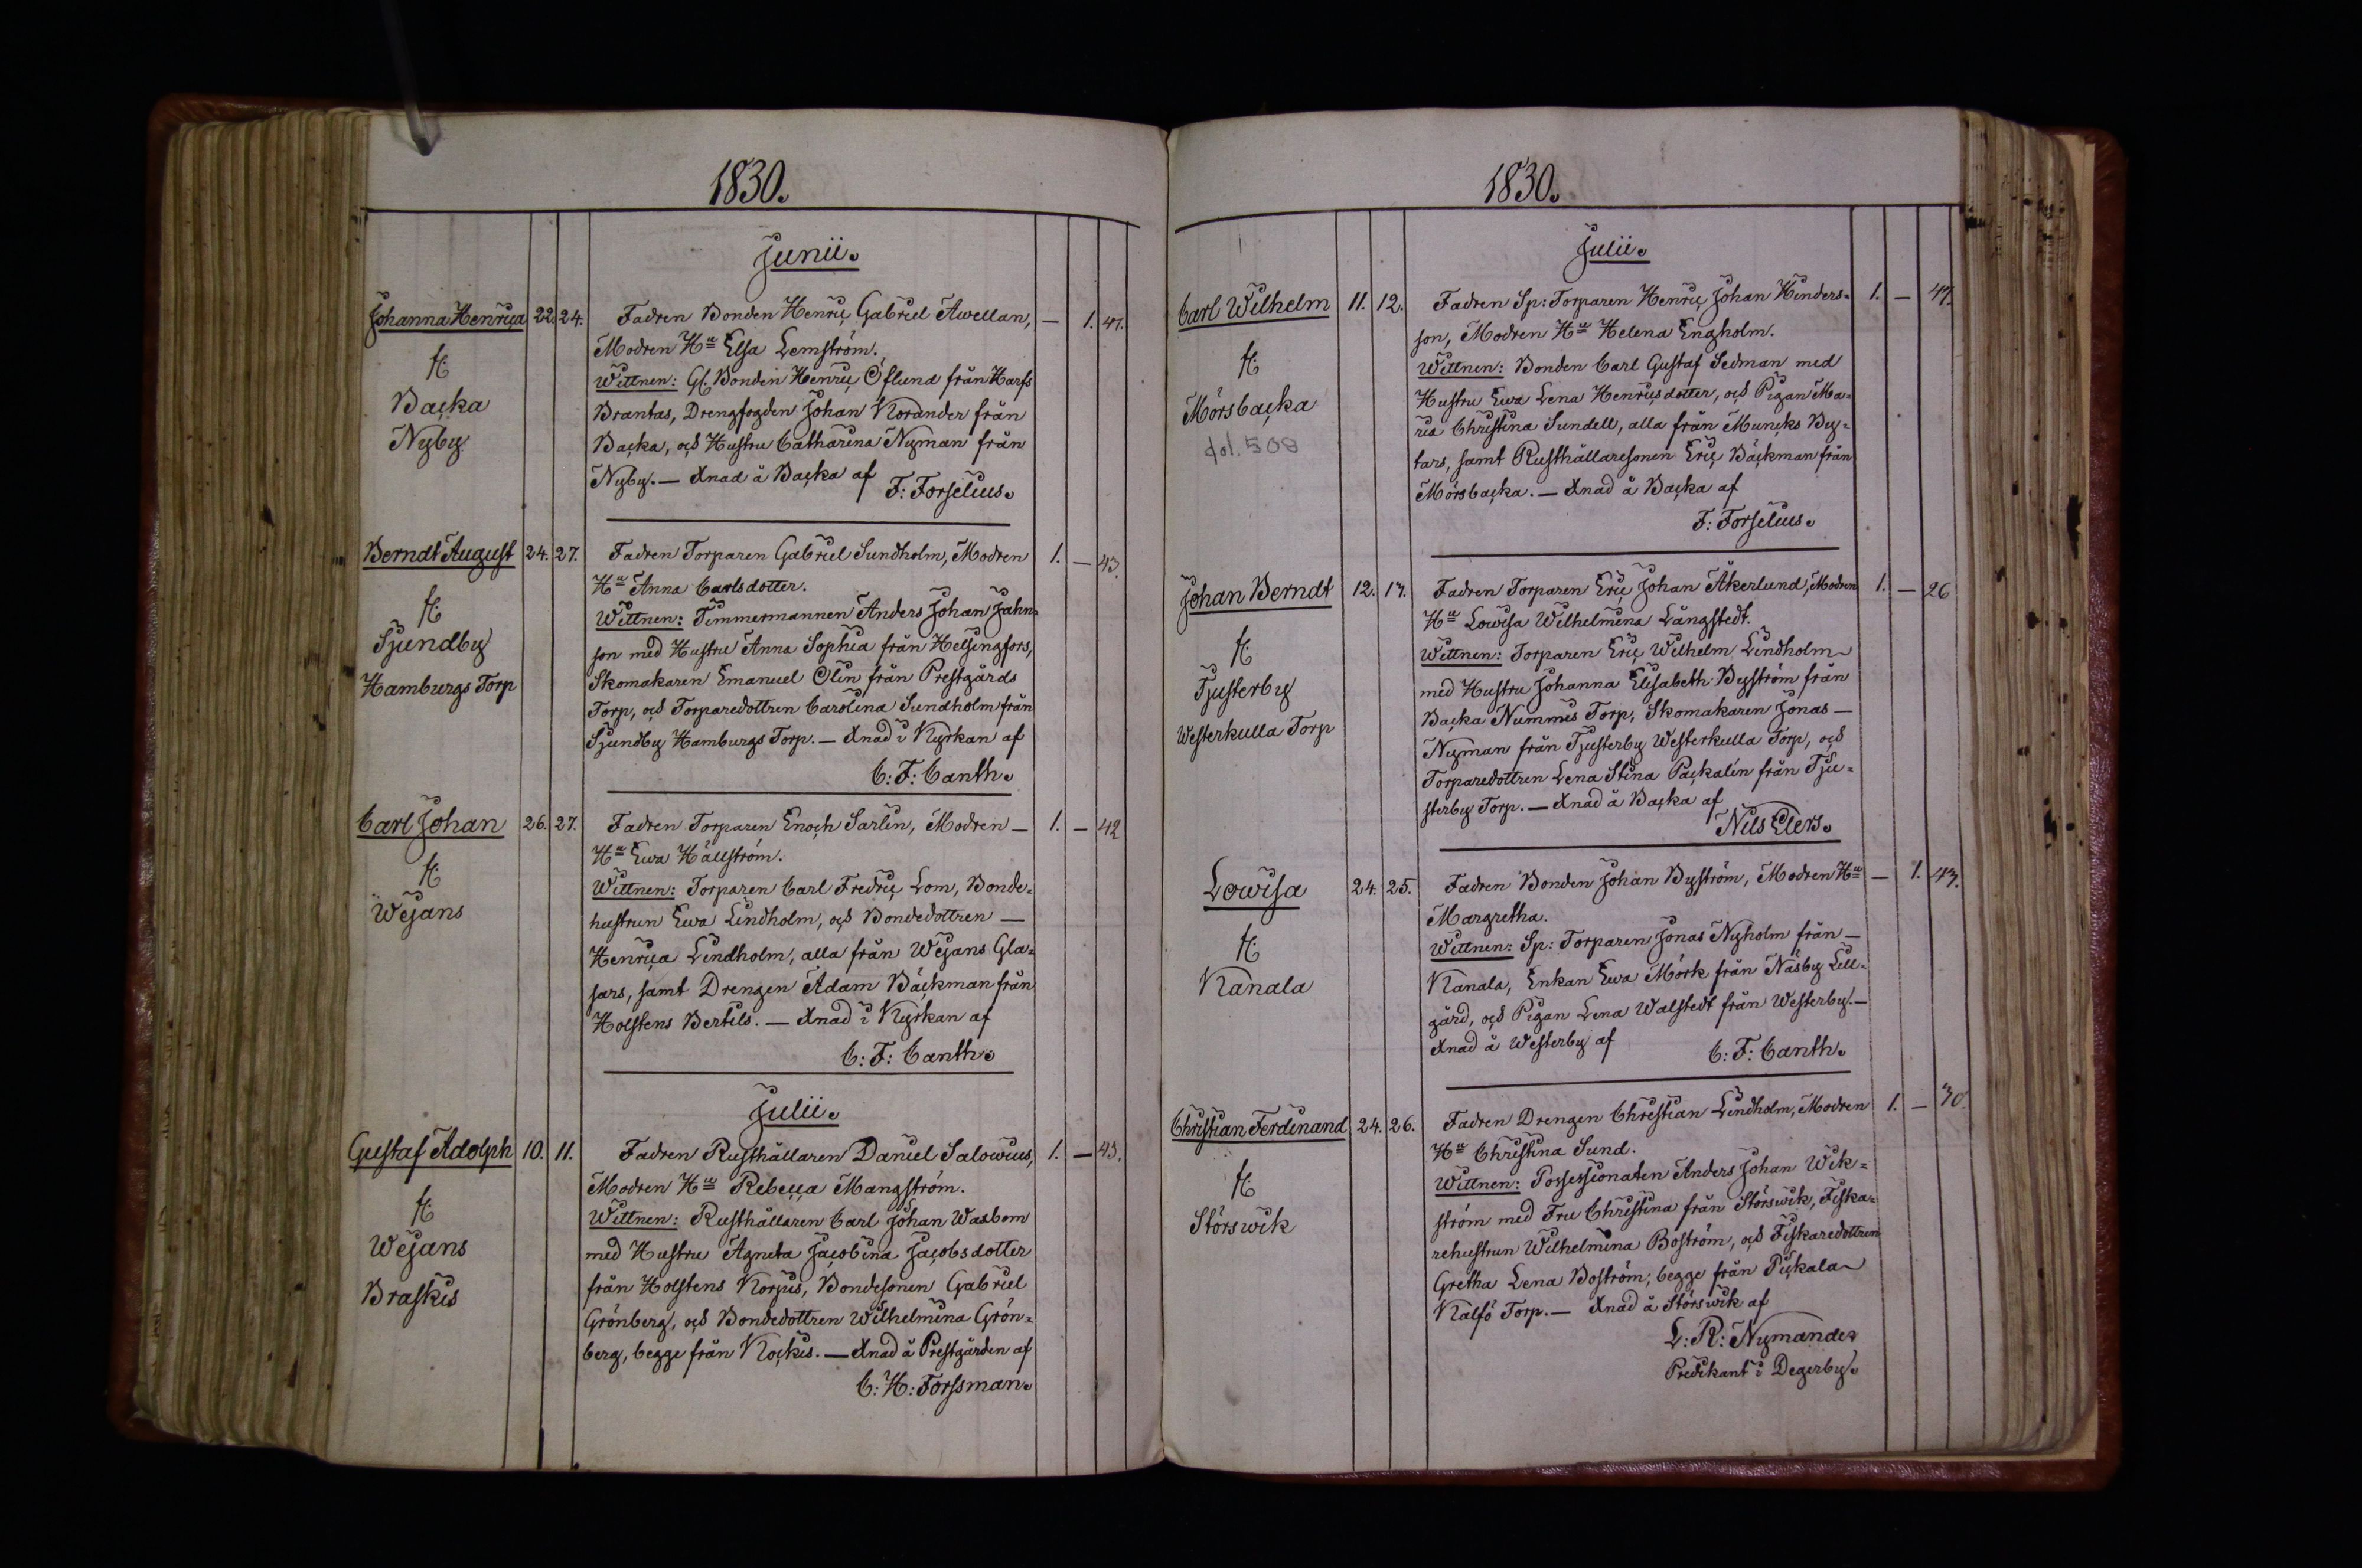 1830.
Junii.
Johanna Henrica 22. 24. Fadren Bonden Henric Gabriel Awellan, — 1. 41.
Modren Hu Elsa Lemström.
ft: Wittnen: Gl. Bonden Henric Öflund från Harfs
Backa Brantas, Drengfogden Johan Korander från
Nyby Backa, och Hustru Catharina Nyman från
Nyby. — Xnad å Backa af
F: Forselius.
Berndt August 24. 27. Fadren Torparen Gabriel Sundholm, Modren 1. — 43.
Hu Anna Carlsdotter.
ft: Wittnen: Timmermannen Anders Johan Jahn=
Sjundby son med Hustru Anna Sophia från Helsingfors,
Hamburgs Torp Skomakaren Emanuel Olin från Prestgårds
Torp, och Torparedottren Carolina Sundholm från
Sjundby Hamburgs Torp. — Xnad i Kyrkan af
C: F: Canth.
Carl Johan 26. 27. Fadren Torparen Enoch Sarlin, Modren — 1. — 42
Hu Ewa Hällström.
ft: Wittnen: Torparen Carl Fredric Lom, Bonde=
Wejans hustrun Ewa Lindholm, och Bondedottren —
Henrica Lindholm, alla från Wejans Gla=
sars, samt Drengen Adam Bäckman från
Holstens Bertils. — Xnad i Kyrkan af
C: F: Canth.
Julii.
Gustaf Adolph 10. 11. Fadren Rusthållaren Daniel Salowius, 1. — 43.
Modren Hu Rebecca Mangström.
ft: Wittnen: Rusthållaren Carl Johan Waxbom
Wejans med Hustru Agneta Jacobina Jacobsdotter
Braskis från Holstens Korpis, Bondesonen Gabriel
Grönberg, och Bondedottren Wilhelmina Grön=
berg, begge från Kockis. — Xnad å Prestgården af
C: H: Forssman.
1830.
Julii.
Carl Wilhelm 11. 12. Fadren Sp: Torparen Henric Johan Hinders= 1. — 47.
son, Modren Hu Helena Engholm.
ft: Wittnen: Bonden Carl Gustaf Sedman med
Mörsbacka Hustru Ewa Lena Henricsdotter, och Pigan Ma=
fol. 508 ria Christina Sundell, alla från Muncks By=
tars, samt Rusthållaresonen Eric Bäckman från
Mörsbacka. — Xnad å Backa af
F: Forselius.
Johan Berndt 12. 17. Fadren Torparen Eric Johan Åkerlund, Modren 1. — 26
Hu Lowisa Wilhelmina Långstedt.
ft: Wittnen: Torparen Eric Wilhelm Lindholm
Tjusterby med Hustru Johanna Elisabeth Byström från
Westerkulla Torp Backa Nummis Torp, Skomakaren Jonas —
Nyman från Tjusterby Westerkulla Torp, och
Torparedottren Lena Stina Packalén från Tju=
sterby Torp. — Xnad å Backa af
Nils Elers.
Lowisa 24. 25. Fadren Bonden Johan Byström, Modren Hu — 1. 43.
Margretha.
ft: Wittnen: Sp: Torparen Jonas Nyholm från —
Kanala Kanala, Enkan Ewa Mörk från Näsby Lill=
gård, och Pigan Lena Walstedt från Westerby. —
Xnad å Westerby af
C: F: Canth.
Christian Ferdinand 24. 26. Fadren Drengen Christian Lindholm, Modren 1. — 30.
Hu Christina Sund.
ft: Wittnen: Possessionaten Anders Johan Wik=
Störswik ström med Fru Christina från Störswik, Fiska=
rehustrun Wilhelmina Boström, och Fiskaredottren
Gretha Lena Boström, begge från Pickala
Kalfö Torp. — Xnad å Störswik af
L: R: Nymander
Predikant i Degerby.